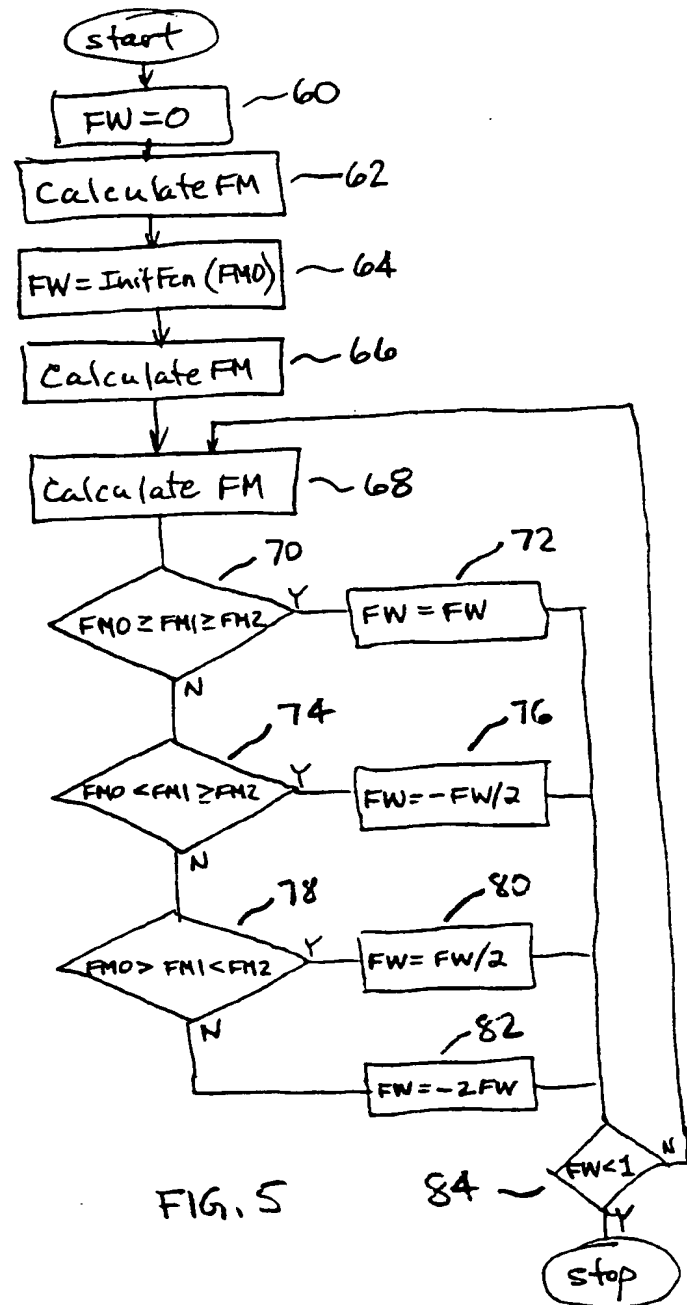 start
FW=0
60
Calculate FM
62
FW=InitFcn (FM0)
64
Calculate FM
66
Calculate FM
68
70
FM0≥FM1≥FM2
Y
72
FW = FW
N
74
FM0<FM1≥FM2
Y
76
FW=-FW/2
N
78
FM0>FM1<FM2
Y
80
FW=FW/2
N
82
FW=-2FW
84
FW<1
N
Y
stop
FIG. 5